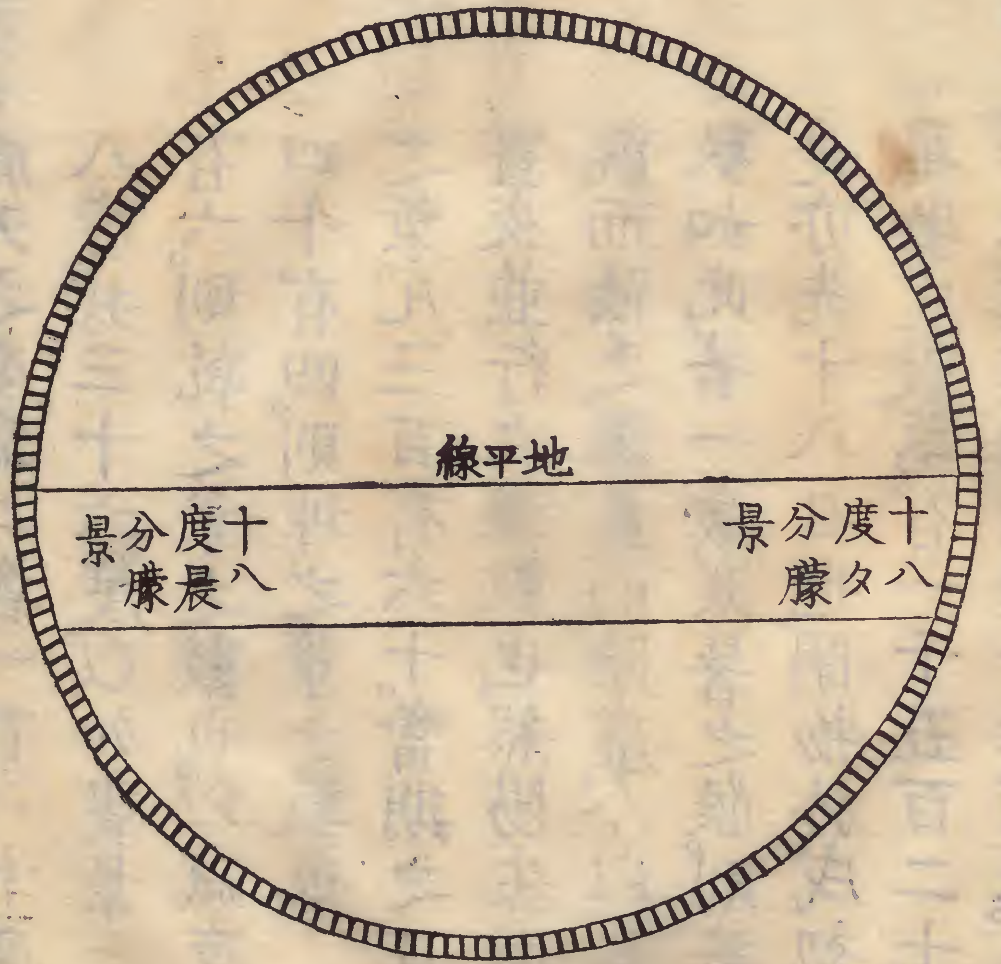 地平線
十八
度夕
分朦
景
十八
度晨
分朦
景